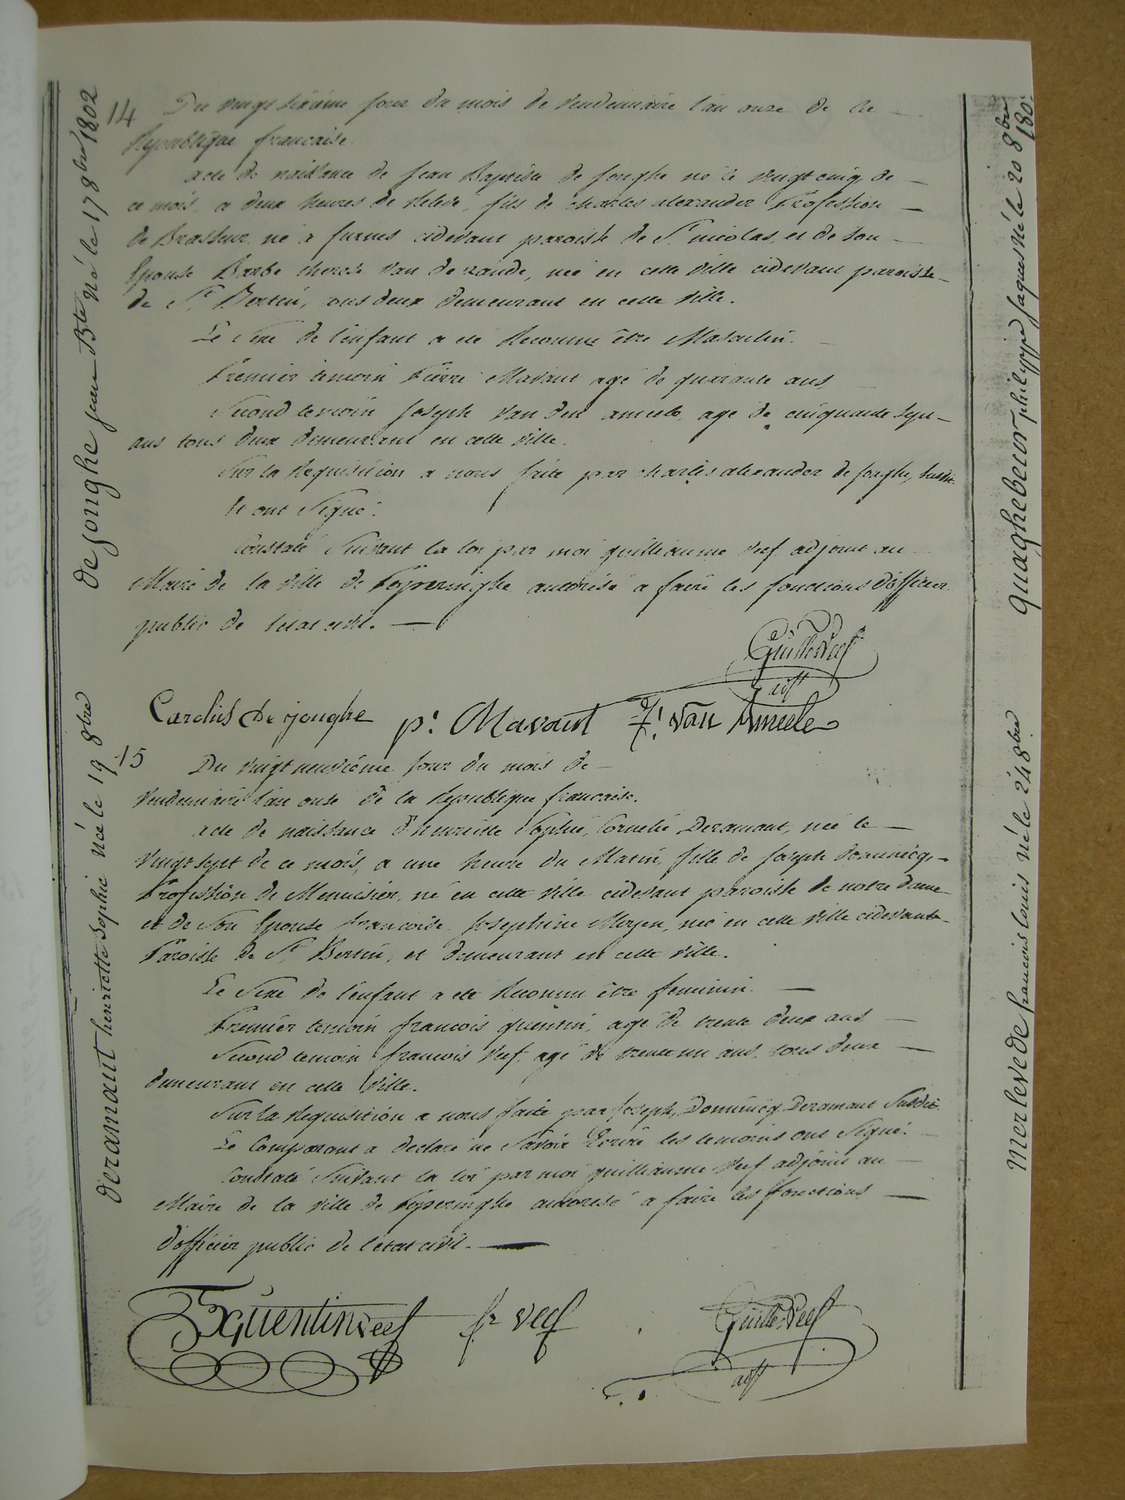 de jonghe jean Bte né le 17 8bre 1802
14 Du vingt sixième jour du mois de vendemiaire l'an onze de la
Republique francaise.
acte de naissance de Jean Baptiste de Jonghe né le vingt cinq de
ce mois, a deux heures de fils de charles alexander Profession
de Brasseur, né a furnes cidevant paroisse de St nicolas, et de son
Epouse Barbe therese van de zande, née en cette ville cidevant paroisse
de St Bertin, tous deux demeurant en cette ville.
Le Sexe de l'enfant a eté Reconnu être Masculin.
Premier temoin Pierre Mavaut agé de quarante ans
Second temoin Joseph van den ameele, agé de cinquante sept
ans tous deux demeurant en cette ville.
Sur la Requisition a nous faite par charles alexander de Jonghe, susdit
Et ont Signé.
Constaté Suivant la loi par moi guilliaume Veef adjoint au
Maire de la ville de Poperinghe autorisé a faire les fonctions d'officier
public de l'etat civil.
Guille Veef
adjt
Carolus De jonghe p: Mavaut J: van Ameele
deramaut henriette Sophie née le 19 8bre
15 Du vingt neuvième jour du mois de
Vendemiaire l'an onze de la Republique francaise.
acte de naissance d'henriette Sophie Cornelie Deramaut, née le
vingt sept de ce mois, a une heure du Matin, fille de Joseph dominicq
Profession de Menuisier, né en cette ville cidevant paroisse de notre dame
et de Son Epouse francoise Josephine Moyen, née en cette ville cidevant
Paroisse de St Bertin, et demeurant en cette ville.
Le Sexe de l'enfant a eté Reconnu être feminin.
Premier temoin francois quentin, agé de trente deux ans
Second temoin francois Veef agé de trente un ans, tous deux
demeurant en cette Ville.
Sur la Requisition a nous faite par Joseph Dominicq Deramaut Susdit
Le Comparant a declaré ne Savoir Ecrire les temoins ont Signé.
Constaté Suivant la loi par moi guilliaume Veef adjoint au
Maire de la ville de Poperinghe autorisé a faire les fonctions
d'officier public de l'etat civil.
quentin veef fr veef Guille Veef
adjt
quaghebeur philippe Jaques né le 20 8bre 180
merlevede francois louis né le 24 8bre